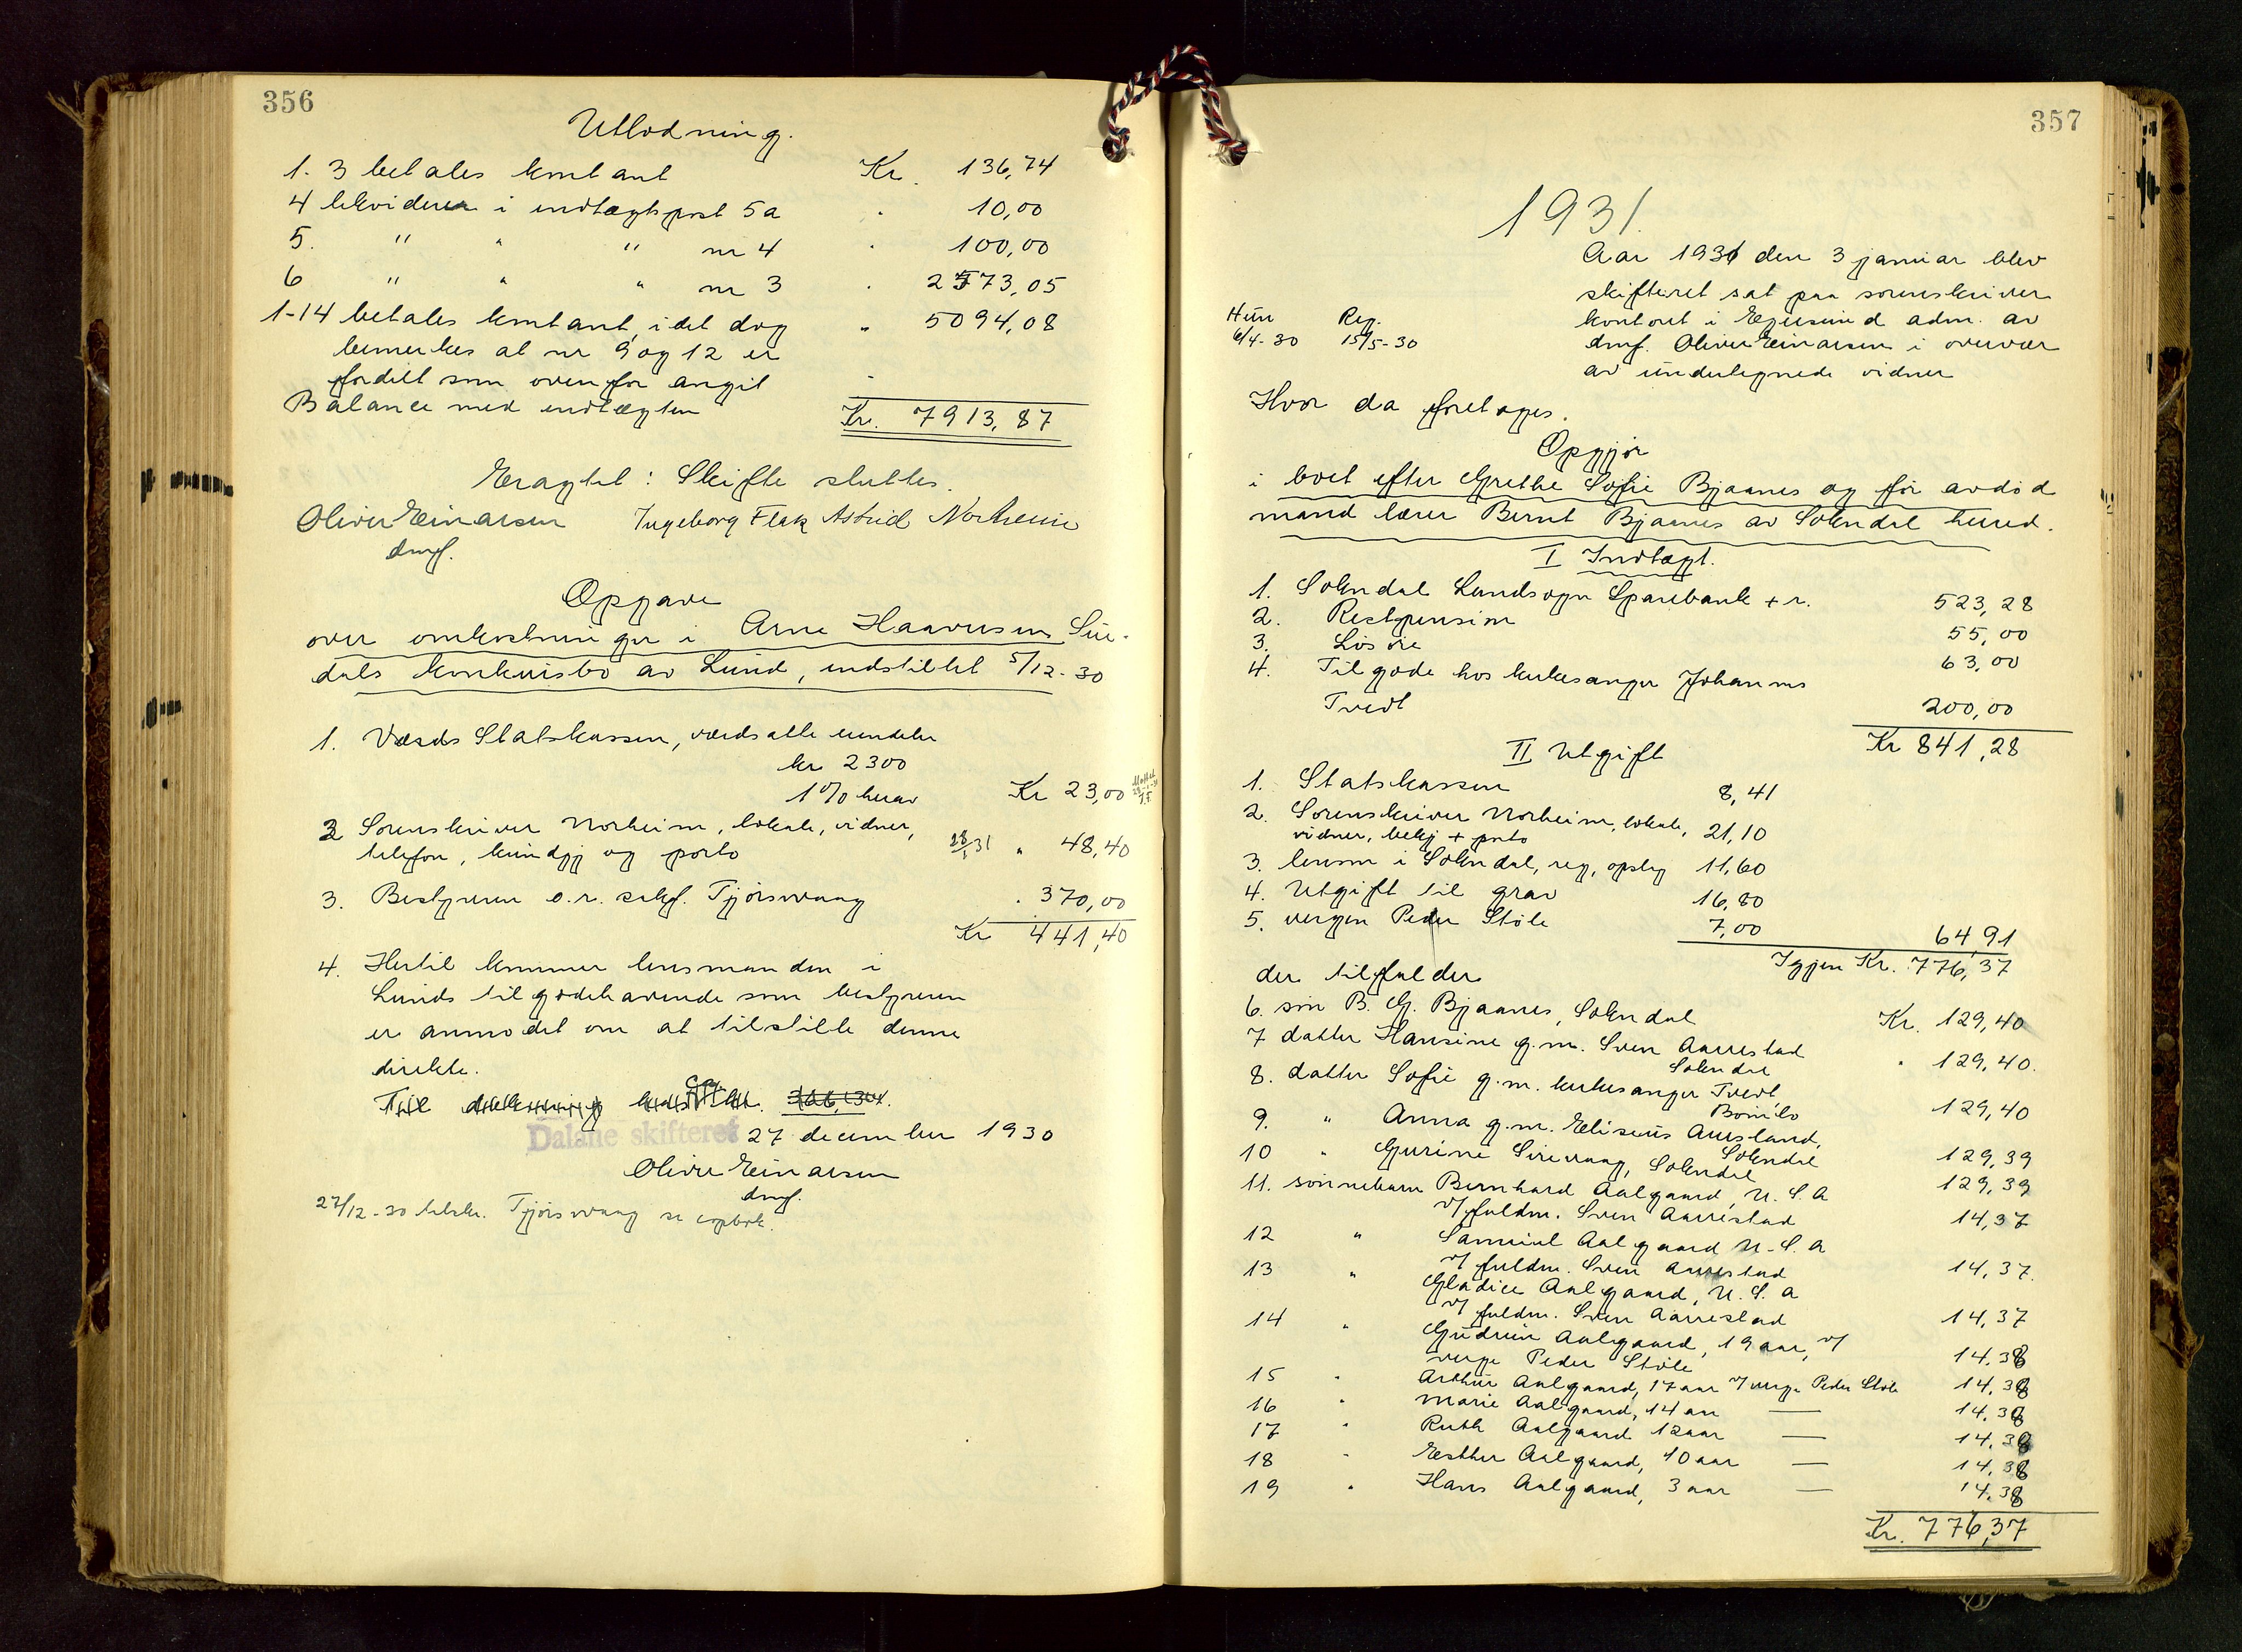 356
Utlodning.
1-3 betales kontant Kr. 136,74
4 likvideres i indtægtspost 5a " 10,00
5. " " " nr 4 " 100,00
6 " " " nr 3 " 2573,05
1-14 betales kontant, idet dog " 5094,08
bemerkes at nr 9 og 12 er
fordelt som ovenfor angit
Balance med indtægten Kr. 7913,87
Eragtet: Skifte sluttes.
Oliver Einarsen Ingeborg Flak Astrid Norheim
dmf.
Opgave
over omkostninger i Arne Haaversen Sue-
dals konkursbo av Lund, indstillet 5/12-30
1. Værds Statskassen, værdsatte eiendeler
kr 2300
1% herav Kr 23,00
2 Sorenskriver Norheim, lokale, vidner,
telefon, kundgj og porto 28/1 31 " 48,40
3. Bestyreren o.r. sakf. Tjørsvaag " 370,00
Kr 441,40
4. Hertil kommer lensmanden i
Lunds tilgodehavende som bestyreren
er anmodet om at tilstille denne
direkte.
Til dækning 366,30
Dalane skifteret 27 december 1930
Oliver Einarsen
dmf.
27/12-30 tilskr. Tjørsvaag se kopibok.
357
1931.
Aar 1931 den 3 januar blev
skifteret sat paa sorenskriver
kontoret i Egersund adm. av
dmf. Oliver Einarsen i overvær
av undertegnede vidner
Hun Reg.
6/4-30 15/5-30
Hvor da foretoges.
Opgjør
i boet efter Grethe Sofie Bjaanes og før avdød
mand lærer Bernt Bjaanes av Sokndal herred.
I Indtægt.
1. Sokndal Landsogn Sparebank + r. 523,28
2. Restpension 55,00
3. Løsøre 63,00
4. Tilgode hos kirkesanger Johannes
Tvedt 200,00
Kr 841,28
II Utgift
1. Statskassen 8,41
2. Sorenskriver Norheim, lokale, 21,10
vidner, bekj + porto
3. lensm i Sokndal, reg, opslag 11,60
4. Utgift til grav 16,80
5. vergen Peder Støle 7,00 64,91
Igjen Kr. 776,37
der tilfalder
6. søn B. G. Bjaanes, Sokndal Kr. 129,40
7 datter Hansine g.m. Sven Aarrestad
Sokndal " 129,40.
8. datter Sofie g.m. kirkesanger Tvedt,
Bømlo 129,40
9. " Anna g.m. Eliseus Aursland,
Sokndal 129,39
10 " Gurine Sirevaag, Sokndal 129,39
11. sønnebarn Bernhard Aalgaard, U.S.A
v/fuldm. Sven Aarrestad 14,37
12 " Samuel Aalgaard U.S.A
v/ fuldm. Sven Aarrestad 14,37.
13 " Gladice Aalgaard, U.S.A
v/ fuldm. Sven Aarrestad 14,37
14 " Gudrun Aalgaard, 19 aar, v/
verge Peder Støle 14,38
15 " Arthur Aalgaard, 17 aar v/verge Peder Støle 14,38
16 " Marie Aalgaard, 14 aar — 14,38
17 " Ruth Aalgaard 12 aar — 14,38
18 " Esther Aalgaard, 10 aar — 14,38
19 " Hans Aalgaard, 3 aar — 14,38
Kr. 776,37